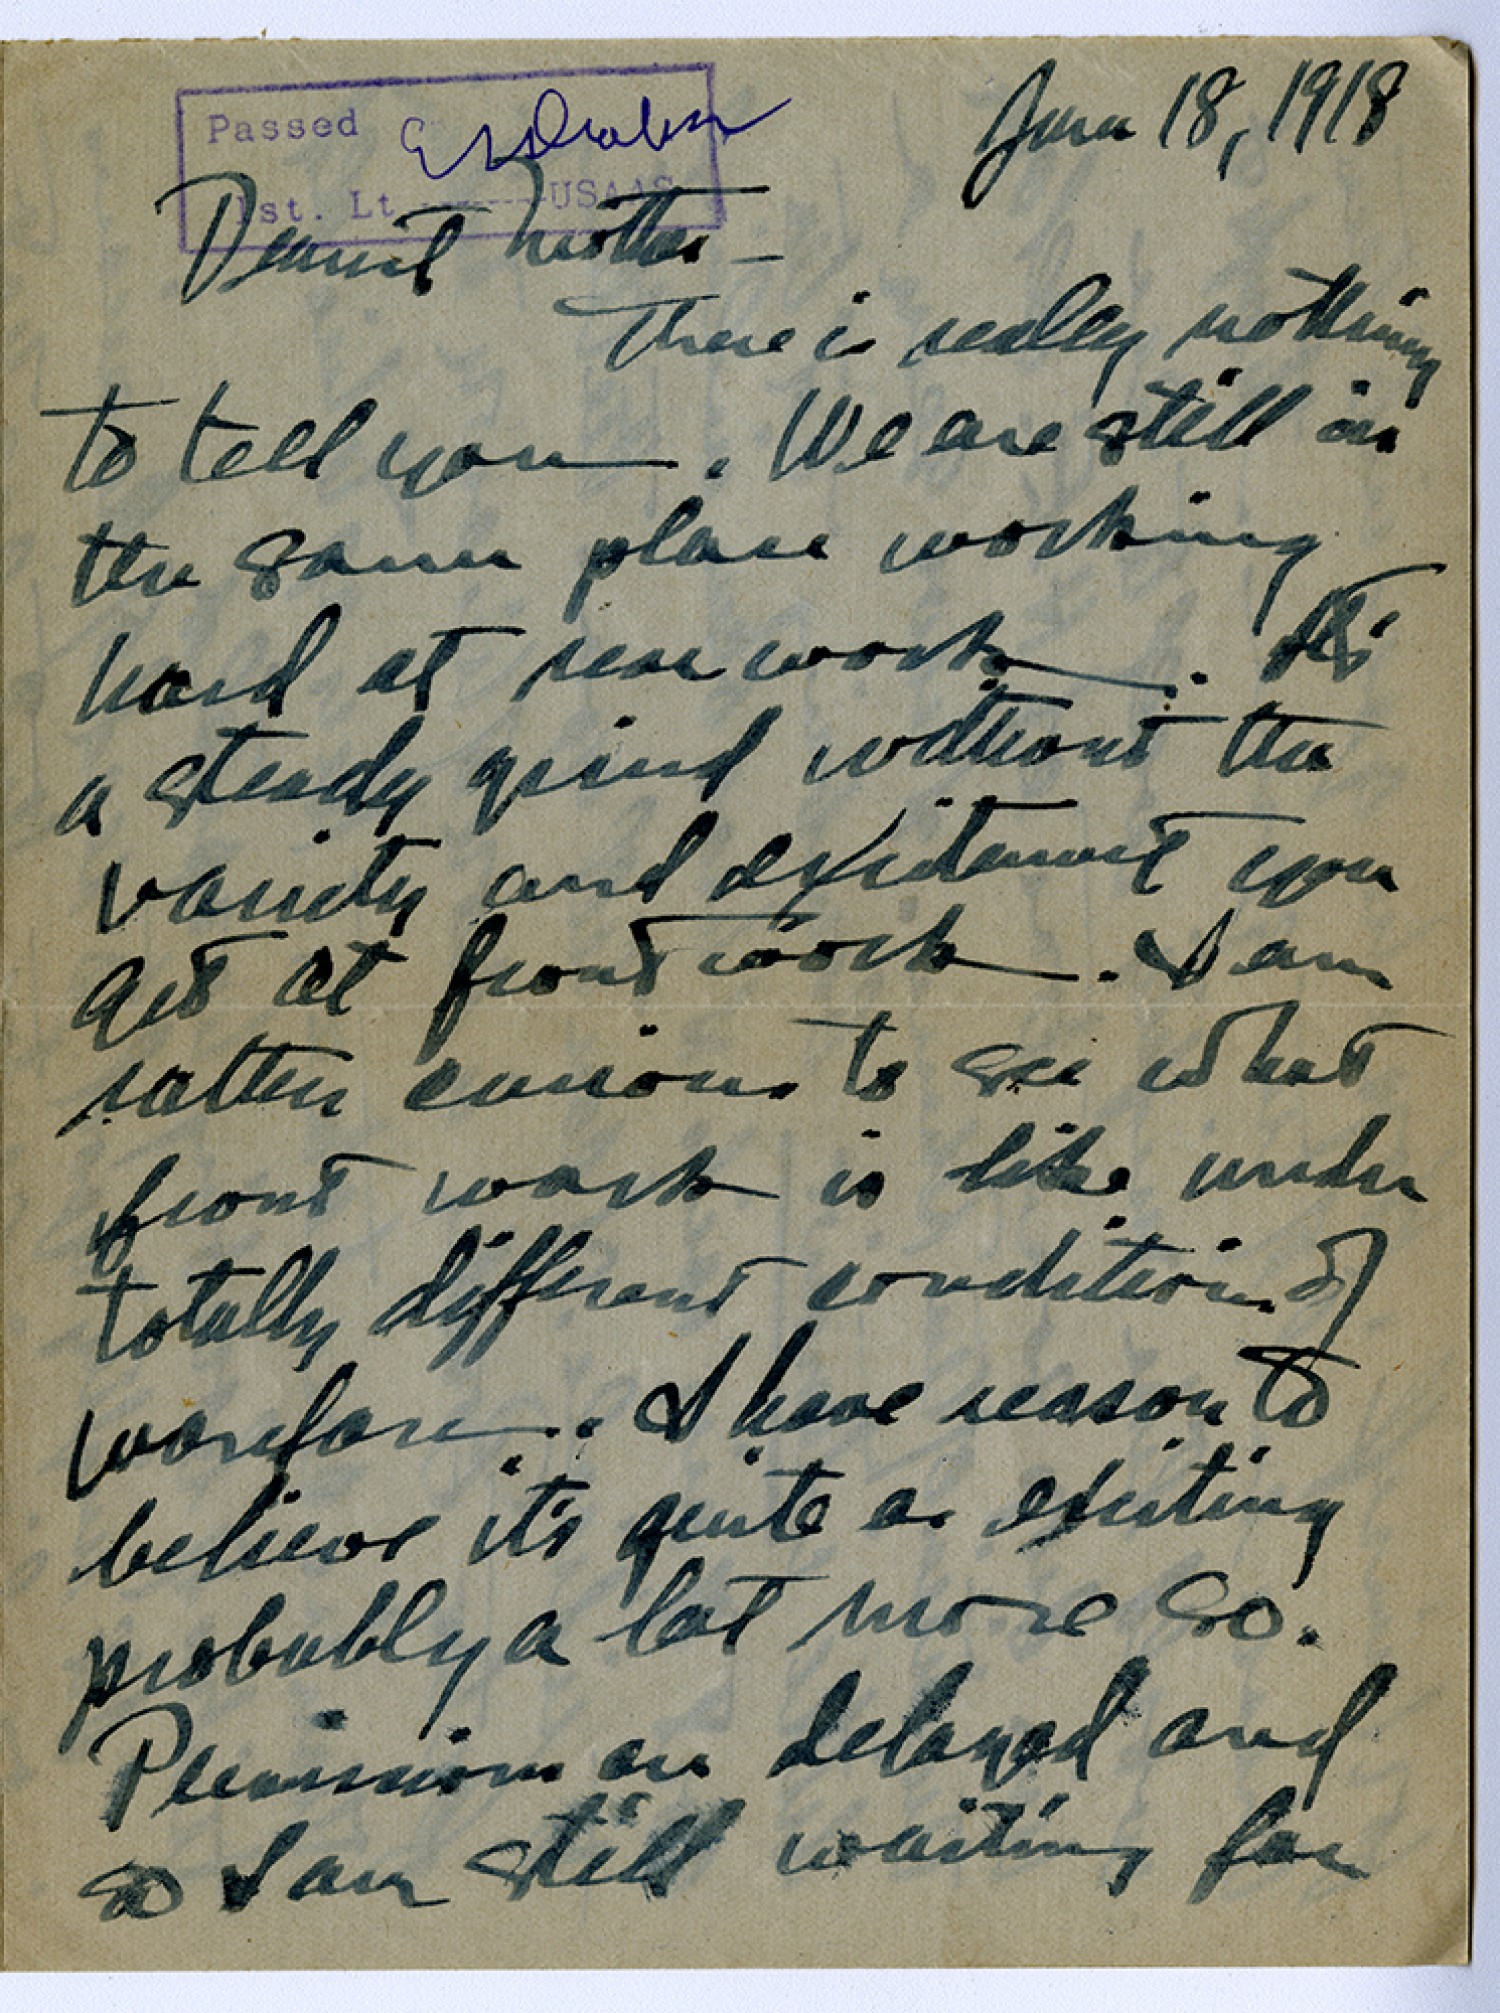 June 18, 1918
Passed
1st. Lt ------- USAAS
Dearest Mother -
There is really nothing
to tell you. We are still in
the same place working
hard at rear work. It's
a steady grind without the
variety and excitement you
get at front work. I am
rather curious to see what
front work is like under
totally different conditions of
warfare. I have reason to
believe it's quite as exciting
probably a lot more so.
Permissions are delayed and
so I am still waiting for